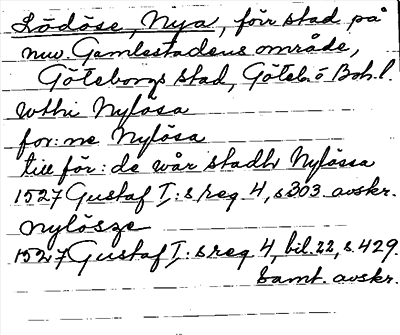 Lödöse, Nya, förr stad på
nuv. Gamlestadens område,
Göteborgs stad, Göteb. o Boh. l.
wthi Nylösa
for:ne Nylösa
till för:de wår stadh Nylössa
1527 Gustaf I:s reg 4, s 303 avskr.
Nylösze
1527 Gustaf I:s reg 4, bil. 22, s. 429.
Samt. avskr.